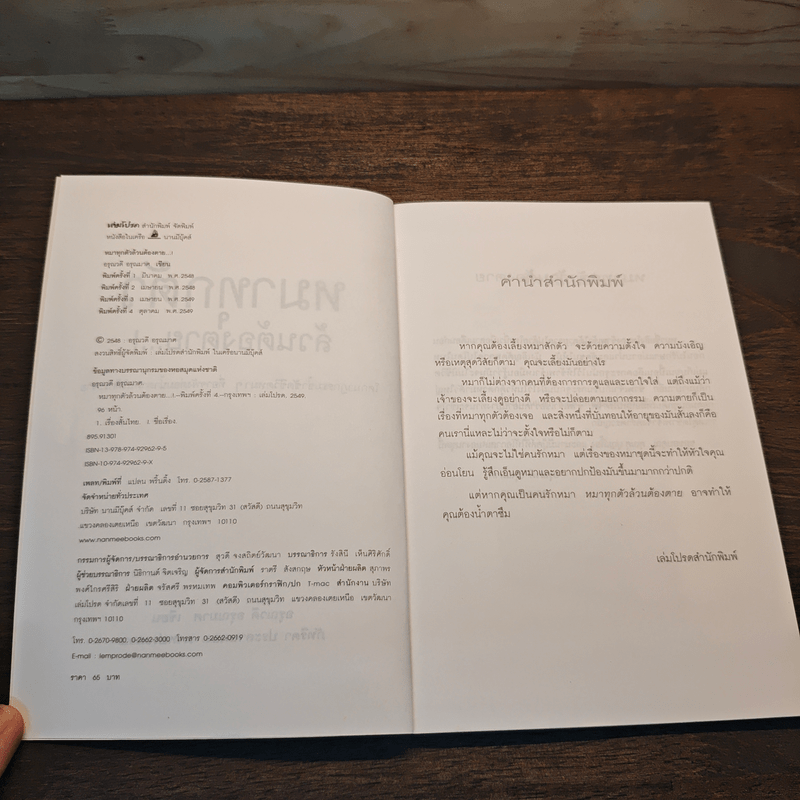 เล่มโปรด สำนักพิมพ์ จัดพิมพ์
หนังสือในเครือ นานมีบุ๊คส์
หมาทุกตัวล้วนต้องตาย...!
อรุณวดี อรุณมาศ เขียน
พิมพ์ครั้งที่ 1 มีนาคม พ.ศ. 2548
พิมพ์ครั้งที่ 2 เมษายน พ.ศ. 2548
พิมพ์ครั้งที่ 3 เมษายน พ.ศ. 2549
พิมพ์ครั้งที่ 4 ตุลาคม พ.ศ. 2549
© 2548 อรุณวดี อรุณมาศ
สงวนสิทธิ์ผู้จัดพิมพ์ : เล่มโปรดสำนักพิมพ์ ในเครือนานมีบุ๊คส์
ข้อมูลทางบรรณานุกรมของหอสมุดแห่งชาติ
อรุณวดี อรุณมาศ.
หมาทุกตัวล้วนต้องตาย...!.--พิมพ์ครั้งที่ 4.--กรุงเทพฯ : เล่มโปรด, 2549.
96 หน้า.
1. เรื่องสั้นไทย. I. ชื่อเรื่อง.
895.91301
ISBN-13-978-974-92962-9-5
ISBN-10-974-92962-9-X
เพลท/พิมพ์ที่ แปลน พริ้นติ้ง โทร. 0-2587-1377
จัดจำหน่ายทั่วประเทศ
บริษัท นานมีบุ๊คส์ จำกัด เลขที่ 11 ซอยสุขุมวิท 31 (สวัสดี) ถนนสุขุมวิท
แขวงคลองเตยเหนือ เขตวัฒนา กรุงเทพฯ 10110
www.nanmeebooks.com
กรรมการผู้จัดการ/บรรณาธิการอำนวยการ สุวดี จงสถิตย์วัฒนา บรรณาธิการ รังสิมี เห็นศิริศักดิ์
ผู้ช่วยบรรณาธิการ นิธิกานต์ จิตเจริญ ผู้จัดการสำนักพิมพ์ ราตรี สังสกฤษ หัวหน้าฝ่ายผลิต สุภาพร
พงศ์ไกรศรีสิริ ฝ่ายผลิต จรัสศรี พรหมเทพ คอมพิวเตอร์กราฟิก/ปก 1-mac สำนักงาน บริษัท
เล่มโปรด จำกัดเลขที่ 11 ซอยสุขุมวิท 31 (สวัสดี) ถนนสุขุมวิท แขวงคลองเตยเหนือ เขตวัฒนา
กรุงเทพฯ 10110
โทร. 0-2670-9800, 0-2662-3000 โทรสาร 0-2662-0919
E-mail : lemprode@nanmeebooks.com
ราคา 65 บาท
คำนำสำนักพิมพ์
หากคุณต้องเลี้ยงหมาสักตัว จะด้วยความตั้งใจ ความบังเอิญ
หรือเหตุสุดวิสัยก็ตาม คุณจะเลี้ยงมันอย่างไร
หมาก็ไม่ต่างจากคนที่ต้องการการดูแลและเอาใจใส่ แต่ถึงแม้ว่า
เจ้าของจะเลี้ยงดูอย่างดี หรือจะปล่อยตามยถากรรม ความตายก็เป็น
เรื่องที่หมาทุกตัวต้องเจอ และสิ่งหนึ่งที่บั่นทอนให้อายุของมันสั้นลงก็คือ
คนเรานี่แหละไม่ว่าจะตั้งใจหรือไม่ก็ตาม
แม้คุณจะไม่ใช่คนรักหมา แต่เรื่องของหมาชุดนี้จะทำให้หัวใจคุณ
อ่อนโยน รู้สึกเอ็นดูหมาและอยากปกป้องมันขึ้นมามากกว่าปกติ
แต่หากคุณเป็นคนรักหมา หมาทุกตัวล้วนต้องตาย อาจทำให้
คุณต้องน้ำตาซึม
เล่มโปรดสำนักพิมพ์